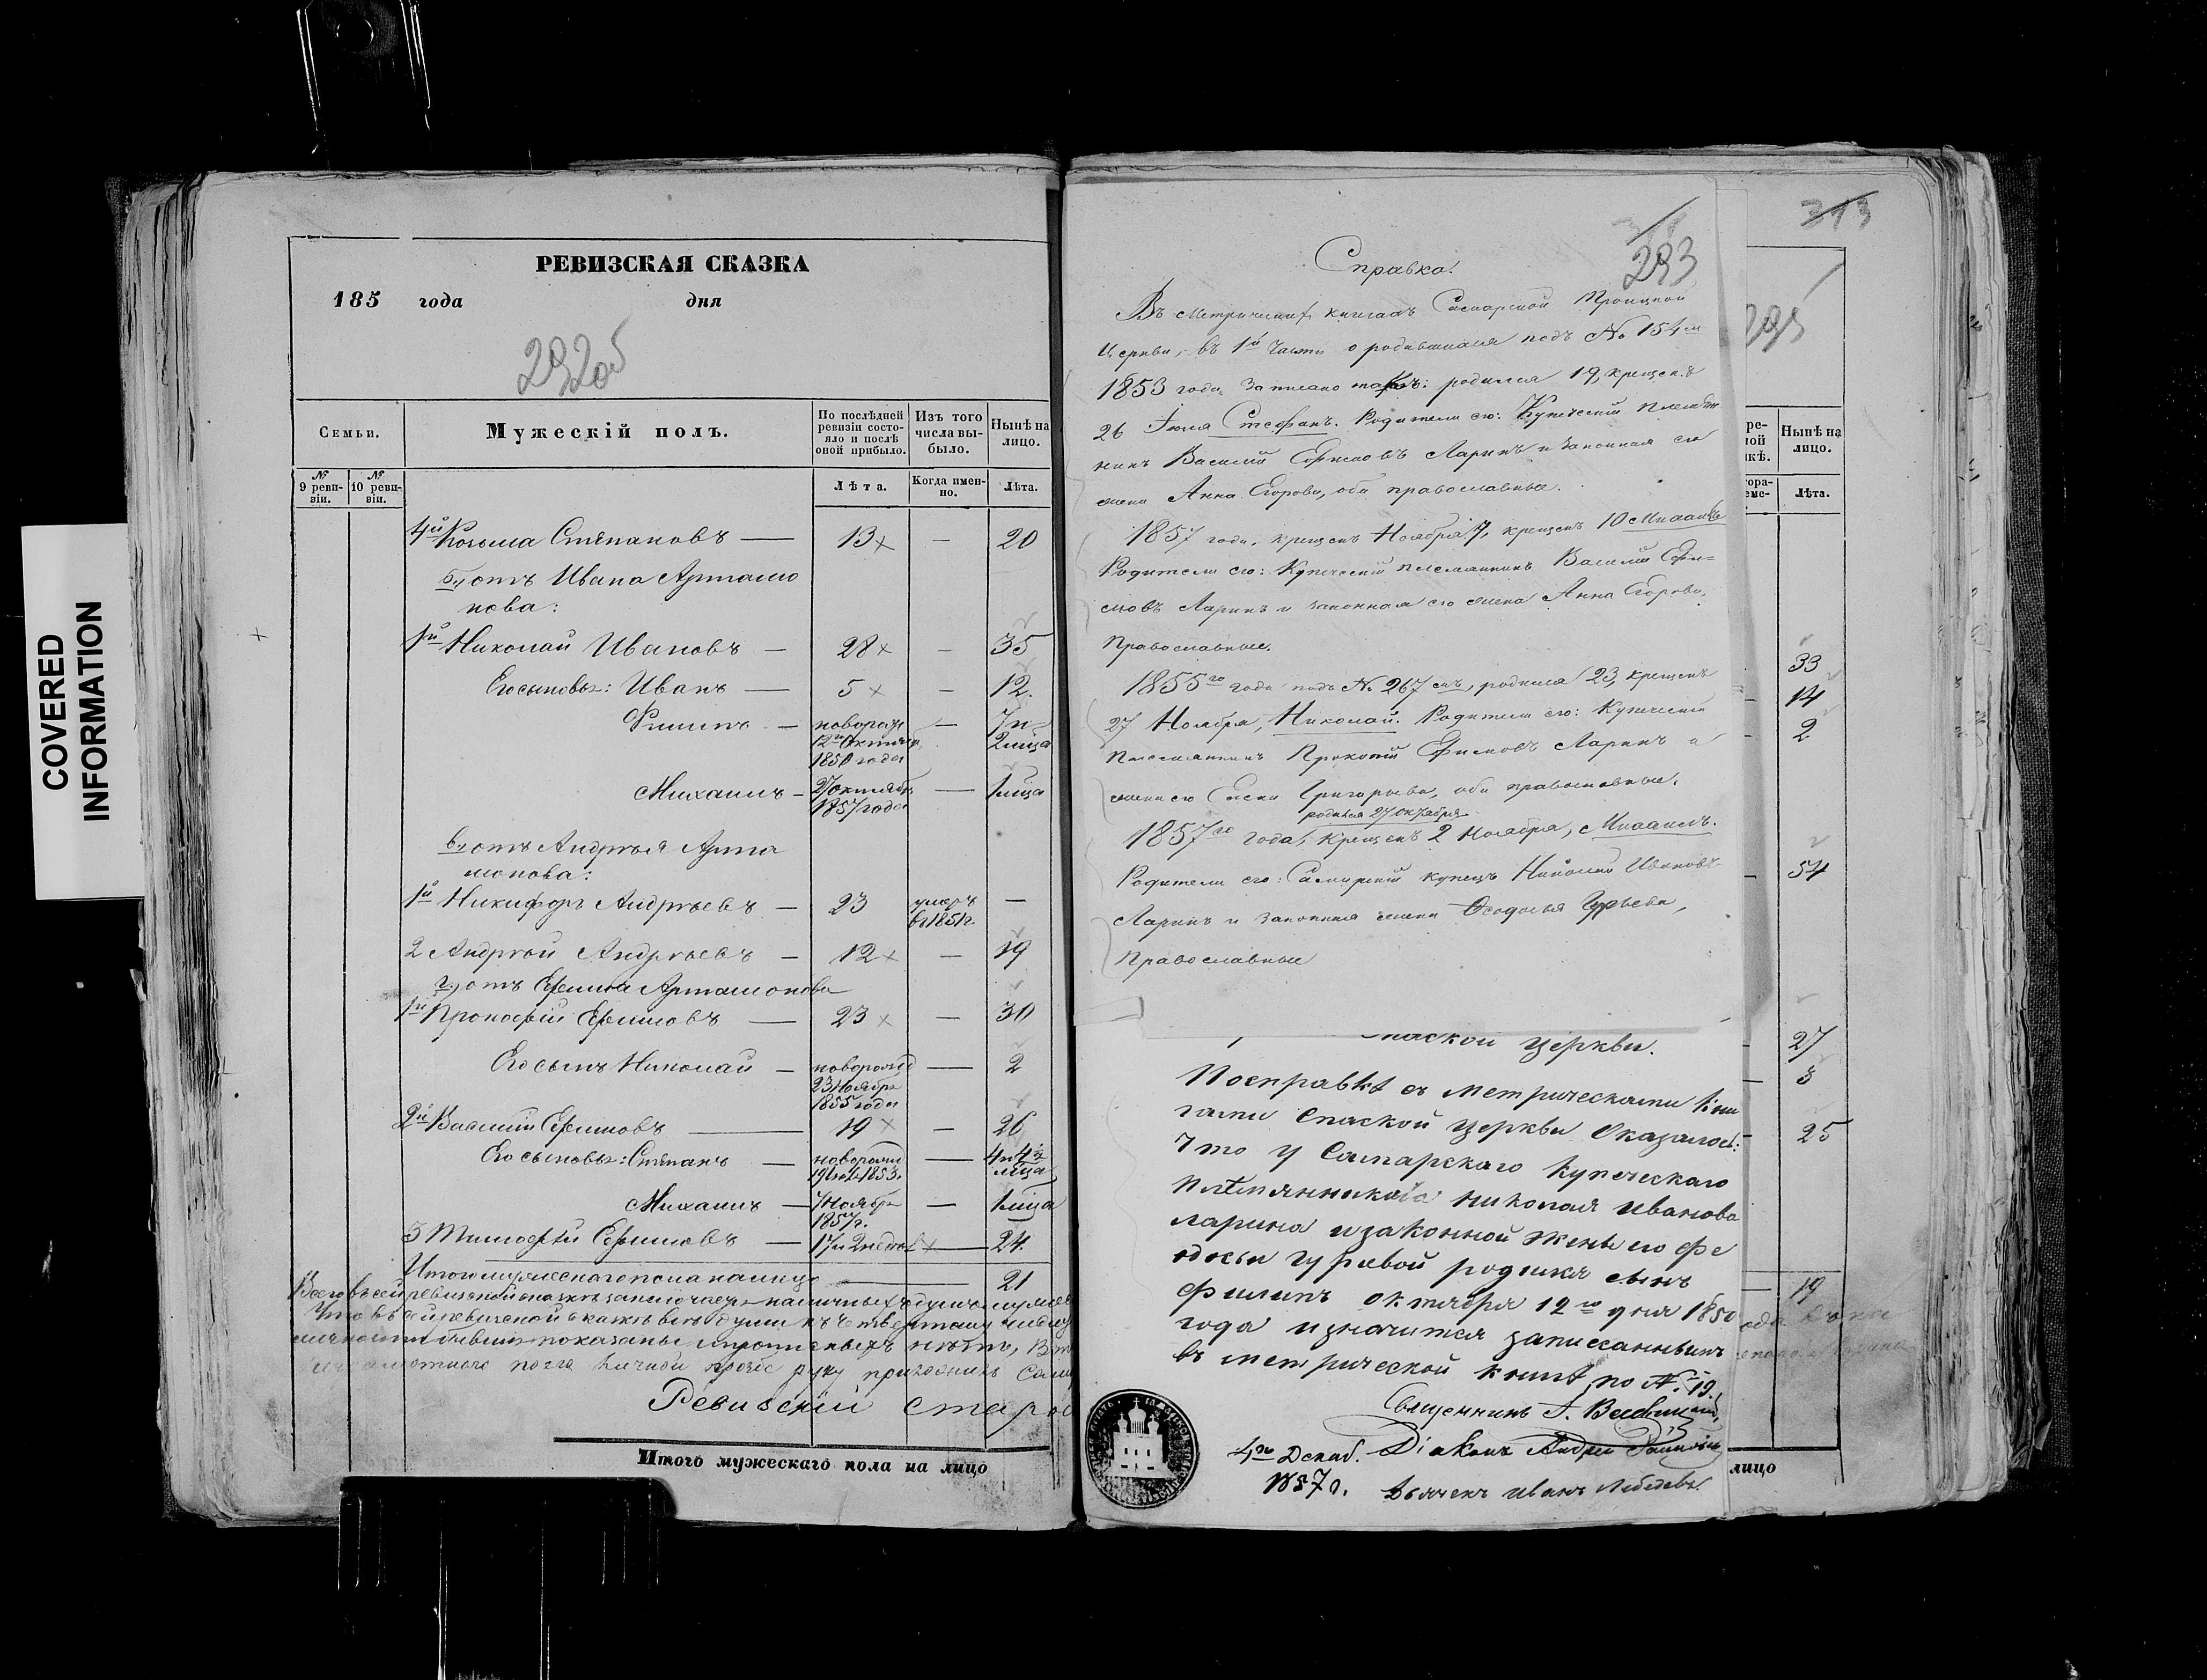 COVERED
INFORMATION
РЕВИЗСКАЯ СКАЗКА
185 года дня
292об
Семьи.
Мужескій полъ.
По послѣдней ревизіи состояло и послѣ оной прибыло.
Изъ того числа выбыло.
Нынѣ на лицо.
№ 9 ревизіи.
№ 10 ревизіи.
Лѣта.
Когда именно.
Лѣта.
4й Козьма Степановъ — 13 — 20
б., отъ Ивана Артамо
нова:
1й Николай Ивановъ — 28 — 35
Его сыновья: Иванъ — 5 — 12.
Филипъ — новорожд — 7 и
12го Октября 2 мѣца
1850 года
Михаилъ — 27 октября — 1 мѣца
1857 года
в., отъ Андрѣя Арта
монова:
1й Никифоръ Андрѣевъ — 23 умеръ —
въ 1851 г.
2 Андрѣй Андрѣевъ — 12 — 19
г., отъ Ефима Артамонова
1й Прокофій Ефимовъ — 23 — 30
Его сынъ Николай — новорожд — 2
23 Ноября
1855 года
2й Василій Ефимовъ — 19 — 26
Его сыновья: Степанъ — новорожд — 4 и 4
19 Іюля 1853. мѣца
Михаилъ — 7 Ноября — 1 мѣца
1857 г.
3 Тимофѣй Ефимовъ — 17 и 2 недѣл — 24.
Итого мужескаго пола на лицо — 21
Всего въ сей ревизской сказкѣ наличныхъ душъ муже
Что въ сей ревизской сказкѣ всѣ души къ четвертому числу
показаны и прописныхъ нѣтъ,
руку приложилъ Сам
Ревизскій старо
Итого мужескаго пола на лицо
313
293
Справка.
Въ Метрическихъ книгахъ Самарской Троицкой
Церкви, въ 1й части о родившихся подъ № 154м
1853 года записано такъ: родился 19, крещенъ
26 Іюля Стефанъ. Родители его: Купеческій племян
никъ Василій Ефимовъ Ларинъ и законная его
жена Анна Егорова, оба православные.
1857 года, крещенъ Ноября 7, крещенъ 10 Михаилъ
Родители его: Купеческій племянникъ Василій Ефи=
мовъ Ларинъ и законная его жена Анна Егорова,
Православные.
1855го года подъ № 267мъ, родился 23, крещенъ
27 Ноября, Николай. Родители его: Купеческій
племянникъ Прокопій Ефимовъ Ларинъ и
жена его Григорьева, оба православные.
родился 27 октября
1857го года, крещенъ 2 Ноября, Михаилъ.
Родители его: Самарскій купецъ Николай Ивановъ
Ларинъ и законная жена Ѳеодосья Гурьева,
Православные
Спаской церкви.
По справкѣ съ метрическими кни
гами Спаской церкви оказалось:
Что у Самарскаго купеческаго
племянника Николая Иванова
Ларина и законной жены его Фе
одосьи Гурьевой родился сынъ
Филипъ октября 12го дня 1850
года и значится записаннымъ
въ метрической книгѣ по № 19.
Священникъ І.
4го Декаб. Діаконъ Андрей
1857 г. Дьячекъ Иванъ Лебедевъ.
295
Нынѣ на лицо.
Лѣта.
33
14
2
54
27
3
25
19
лицо